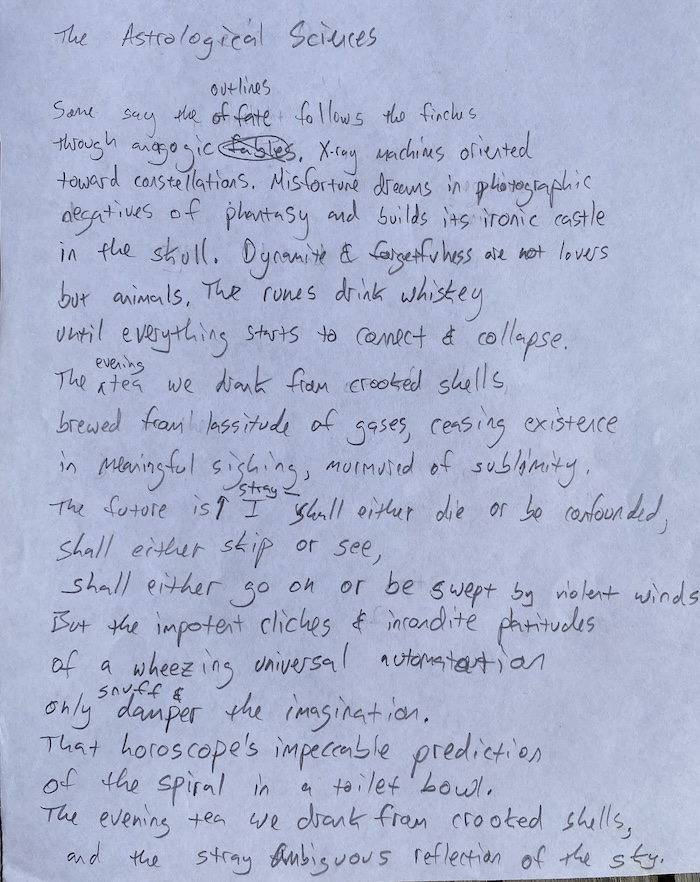 The Astrological Sciences
outlines
Some say the of fate follows the finches
through anagogic fables. X-ray machines oriented
toward constellations. Misfortune dreams in photographic
negatives of phantasy and builds its ironic castle
in the skull. Dynamite & forgetfulness are not lovers
but animals. The runes drink whiskey
until everything starts to connect & collapse.
evening
The tea we drank from crooked shells,
brewed from lassitude of gases, ceasing existence
in meaningful sighing, murmured of sublimity.
stray –
The future is I shall either die or be confounded,
shall either skip or see,
shall either go on or be swept by violent winds
But the impotent cliches & incondite platitudes
of a wheezing universal automatation
snuff &
only damper the imagination.
That horoscope's impeccable prediction
of the spiral in a toilet bowl.
The evening tea we drank from crooked shells,
and the stray Ambiguous reflection of the sky.